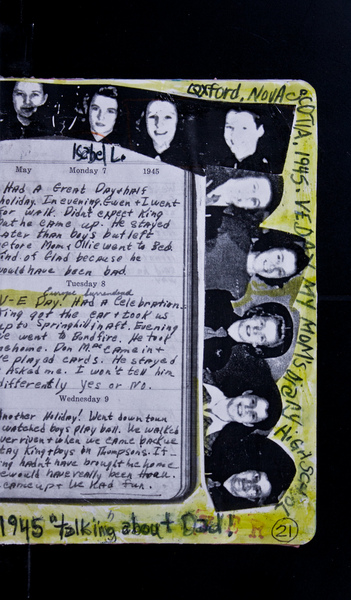 Oxford, Nova Scotia. 1945 VE Day My Mom's Diary High School
Isabel L.
May Monday 7 1945
Had A Great Day. half
holiday. In evening Gwen + I went
for walk. Didn't expect King
but he came up. He stayed
later than boys but left
before Mom + Ollie went to Bed.
kind of Glad because he
would have been bad
Tuesday 8
Europe Surrendered
V-E Day! Had a Celebration.
King got the car + took us
up to Springhill in Aft. Evening
we went to Bondfire. He took
me home. Don Mac came in +
we played cards. He stayed
Asked me. I won't tell him
differently Yes or No.
Wednesday 9
Another Holiday! Went down town
watched boys play ball. We walked
over river + when we came back we
King + boys on Thompsons. If
King hadn't have brought me home
would have really been
came up + we Had fun.
1945 "talking" about Dad!
21